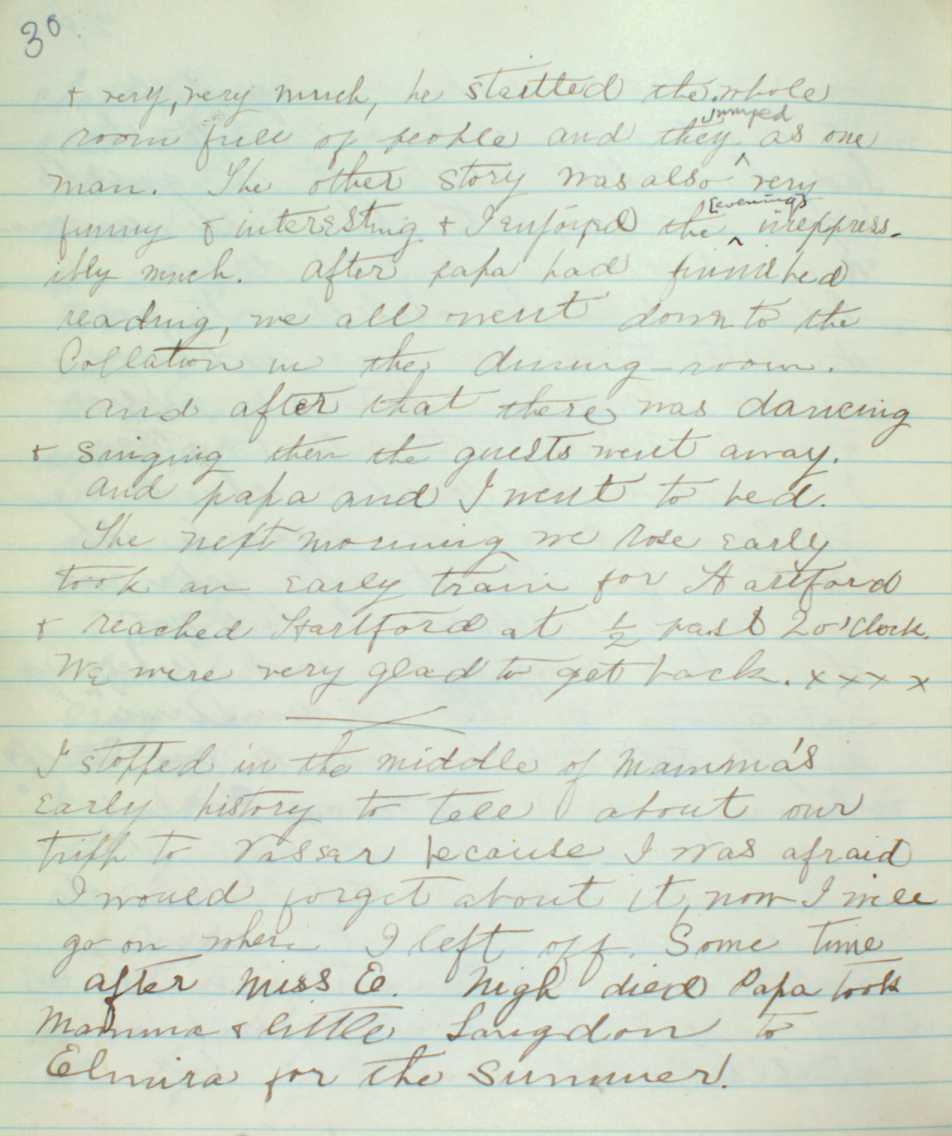 30
& very, very much, he startted the whole
room full of people and they jumped as one
man. The other story was also very
funny & interesting & I enjoyed the [evening] inexpress-
ibly much. After papa had finnished
reading, we all went down to the
Collation in the dining-room.
and after that there was dancing
& singing then the guests went away.
and papa and I went to bed.
The next morning we rose early
took an early train for Hartford
& reached Hartford at ½ past 2 o'clock.
We were very glad to get back. x x x x
I stopped in the middle of mamma's
early history to tell about our
tripp to Vassar because I was afraid
I would forget about it, now I will
go on where I left off. Some time
after Miss E. Nigh died Papa took
Mamma & little Langdon to
Elmira for the Summer.